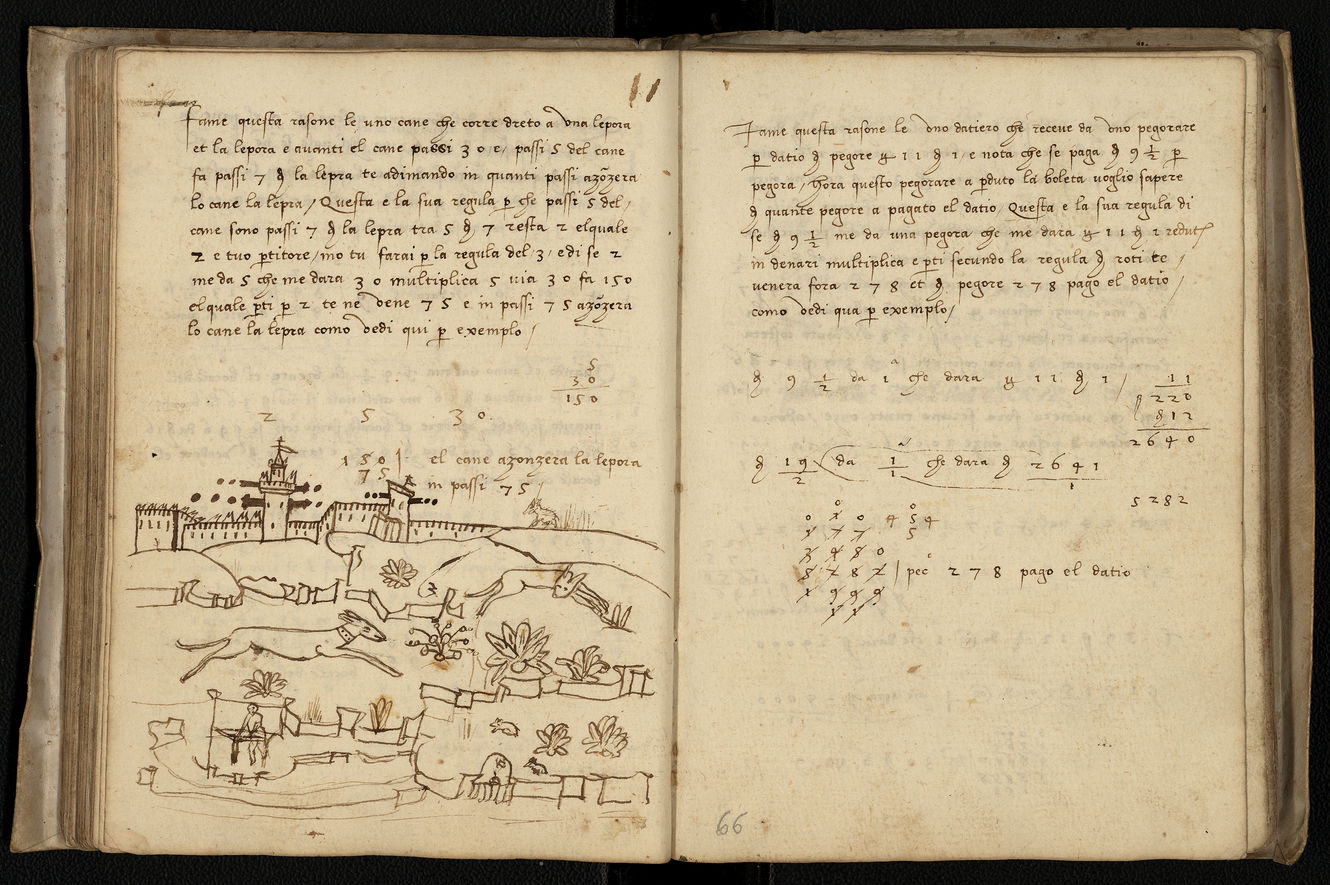 11
Fame questa rasone le uno cane che corre dreto a una lepora
et la lepora e avanti el cane passi 30 e/ passi 5 del cane
fa passi 7 de la lepra te adimando in quanti passi azōzera
lo cane la lepra / Questa e la sua regula p che passi 5 del /
cane sono passi 7 de la lepra tra 5 e 7 resta 2 elquale
2 e tuo ptitore / mo tu farai p la regula del /3/ e di se 2
me da 5 che me dara 30 multiplica 5 via 30 fa 150
elquale pti p 2 te ne vene 75 e in passi 75 azōzera
lo cane la lepra como vedi qui p exemplo /
5
30
150
2 5 30
150 | el cane azonzera la lepora
75 in passi 75 /
Fame questa rasone le vno datiero che receve da vno pegorare
p datio de pegore 11 1 / e nota che se paga 9 1/2 p
pegora / Hora questo pegorare a pduto la boleta voglio sapere
de quante pegore a pagato el datio / Questa e la sua regula di
se 9 1/2 me da una pegora che me dara 11 1 redutj
in denari multiplica e pti secundo la regula de roti te /
venera fora 278 et de pegore 278 pago el datio /
como vedi qua p exemplo /
9 1/2 da 1 che dara 11 1 / 11
220
12
2640
19/2 da 1/1 che dara 2641/1
5282
pec 278 pago el datio
66